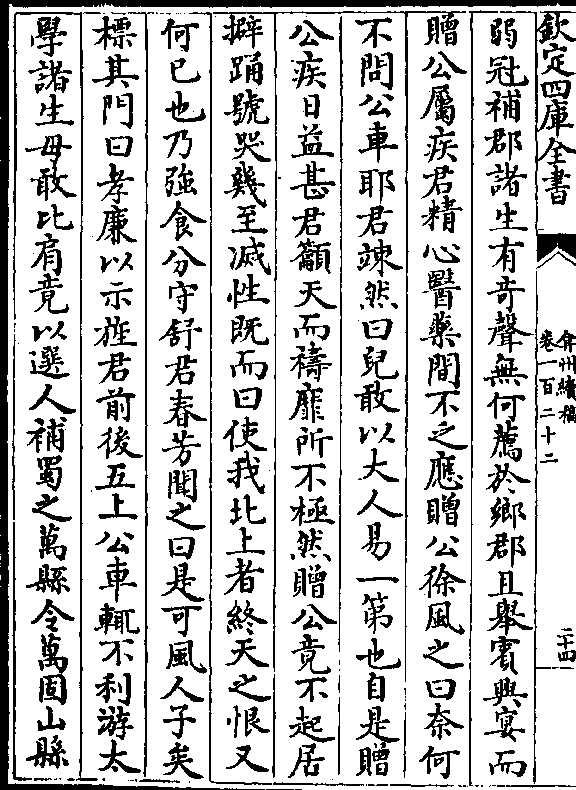 欽定四庫全書
弇州續稿
卷一百二十二
二十四
弱冠補郡諸生有奇聲無何薦於鄉郡且舉賔興宴而
贈公屬疾君精心醫藥間不之應贈公徐風之曰奈何
不問公車耶君竦然曰兒敢以大人易一第也自是贈
公疾日益甚君籲天而禱靡所不極然贈公竟不起居
擗踊號哭幾至滅性既而曰使我北上者終天之恨又
何已也乃強食分守舒君春芳聞之曰是可風人子矣
標其門曰孝廉以示旌君前後五上公車輒不利游太
學諸生毋敢比肩竟以選人補蜀之萬縣令萬固山縣